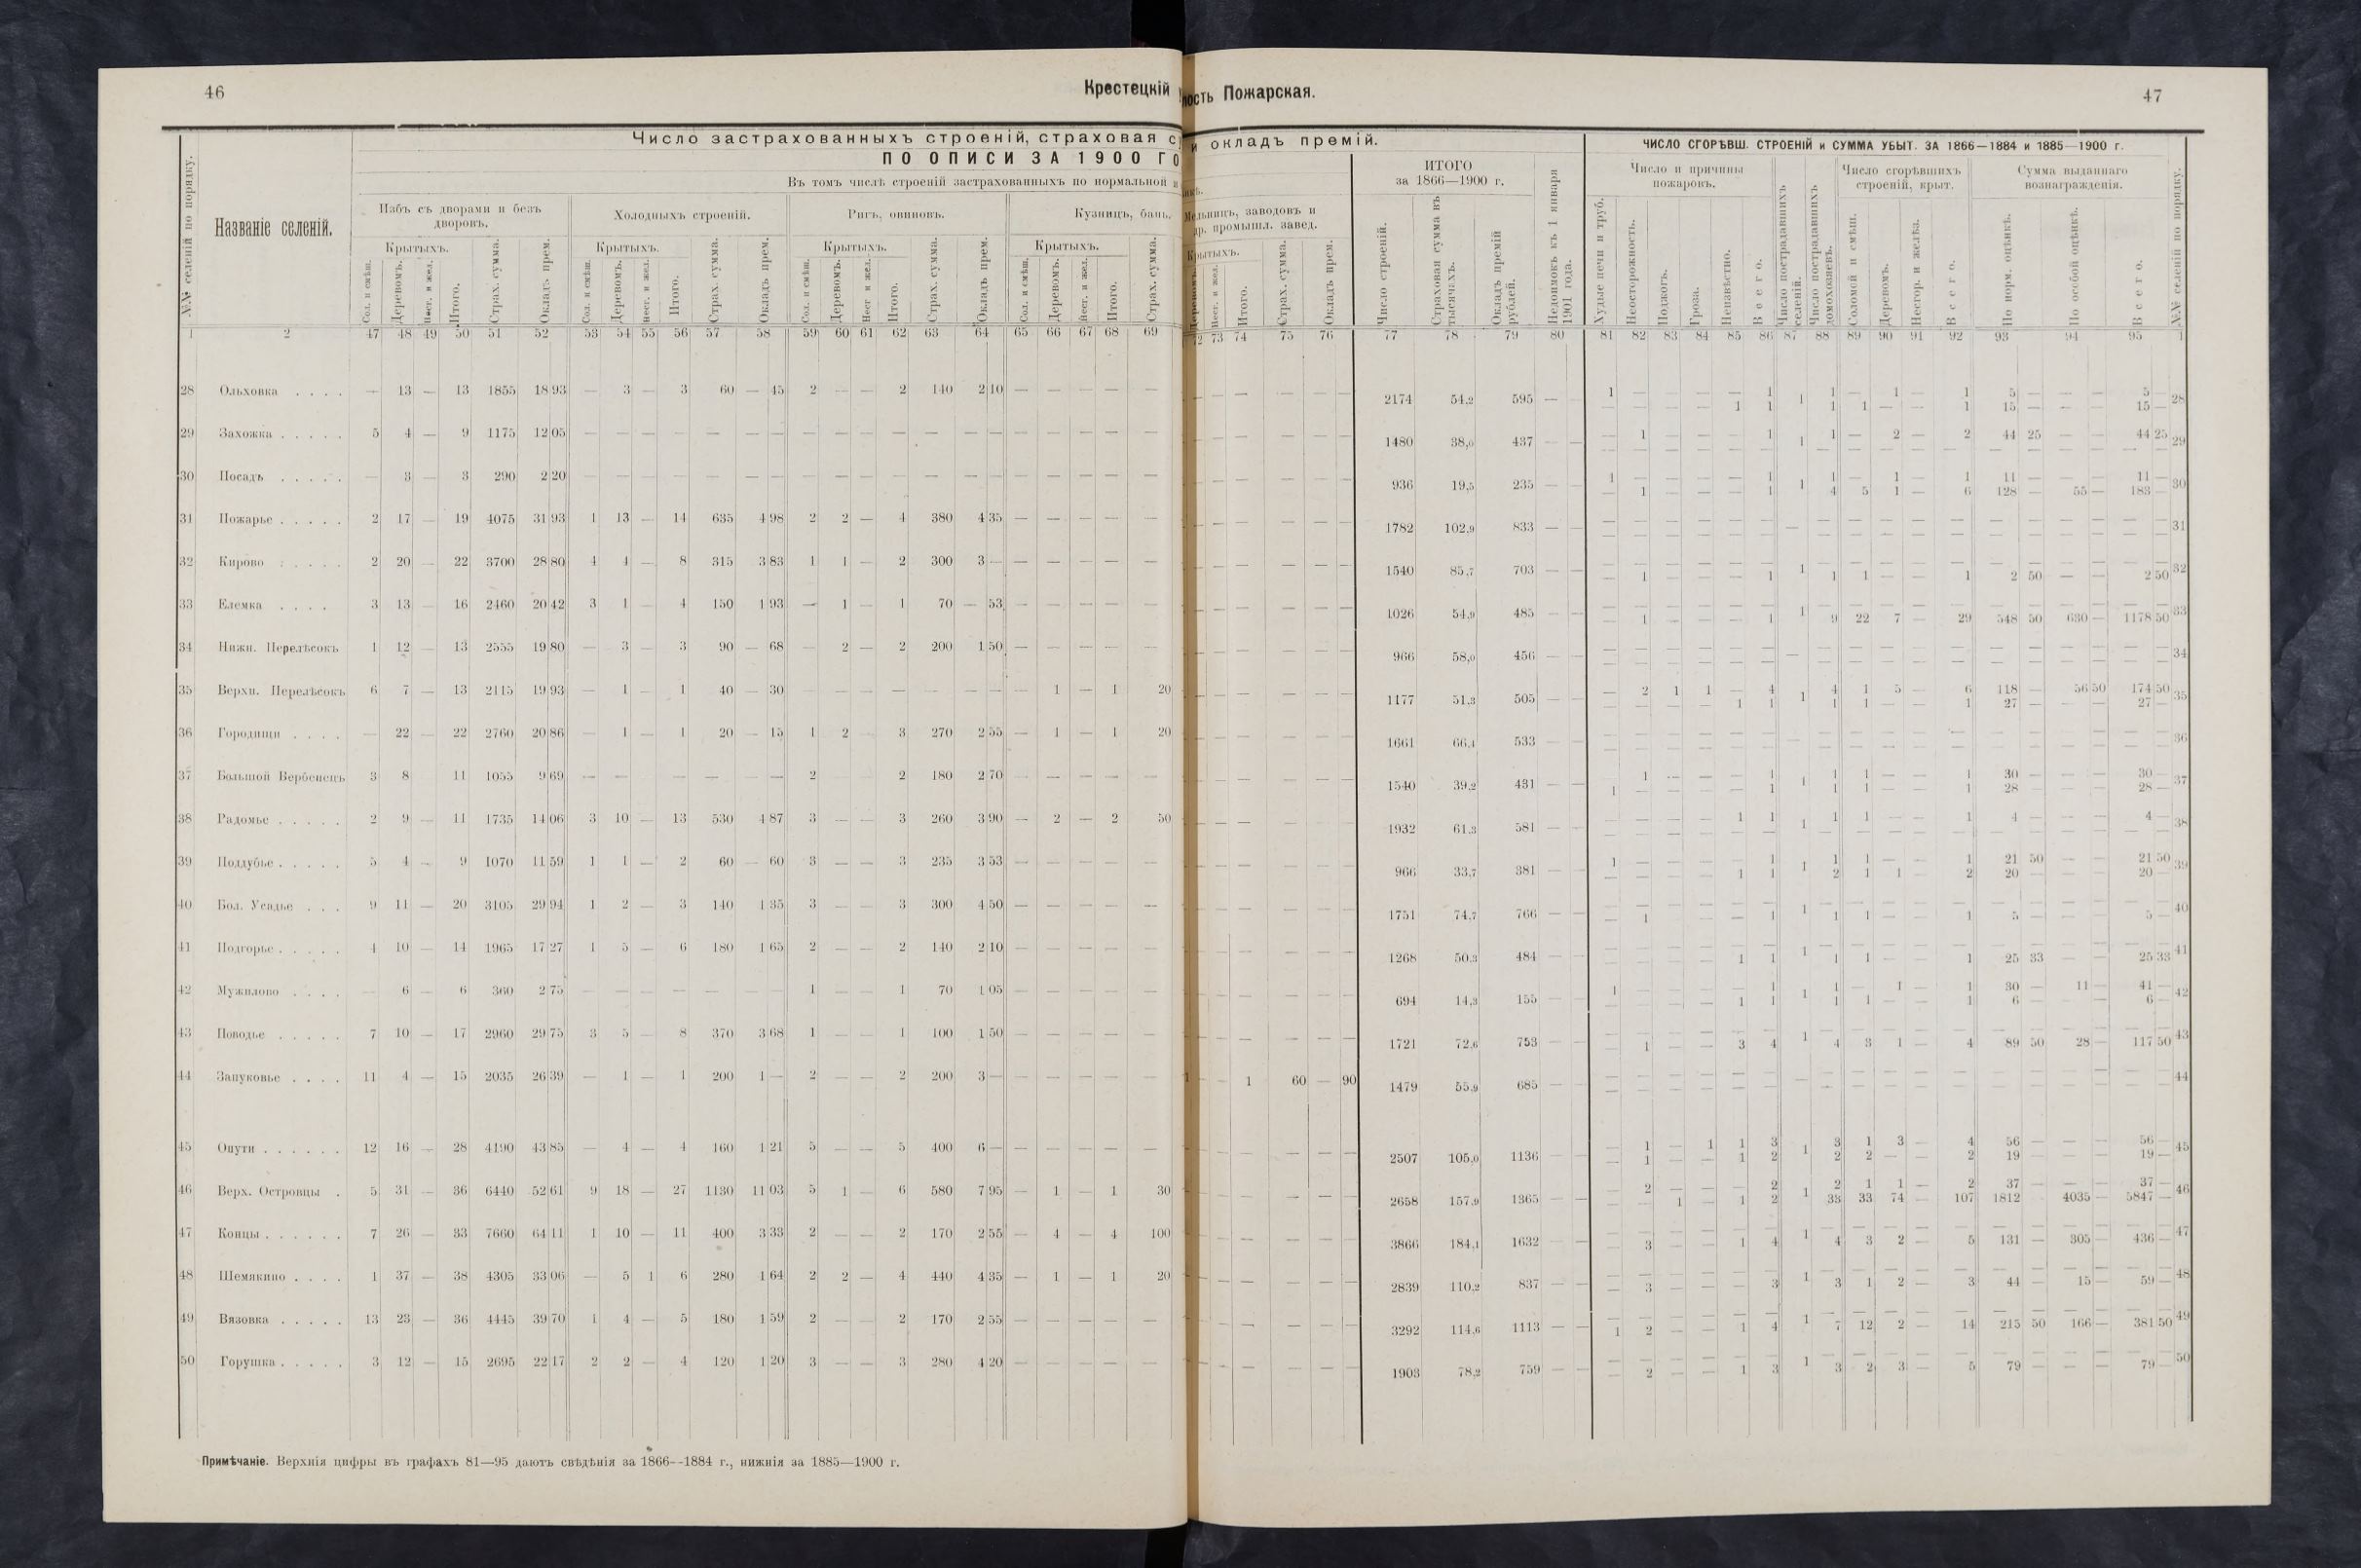 46
Крестецкій
ость Пожарская.
47
Число застрахованныхъ строеній, страховая с
и окладъ премій.
ПО ОПИСИ ЗА 1900 ГО
Въ томъ числѣ строеній застрахованныхъ по нормальной
№№ селеній по порядку.
Названіе селеній.
Избъ съ дворами и безъ дворовъ.
Холодныхъ строеній.
Ригъ, овиновъ.
Кузницъ, бань.
Мельницъ, заводовъ и др. промышл. завед.
ИТОГО за 1866—1900 г.
ЧИСЛО СГОРѢВШ. СТРОЕНІЙ и СУММА УБЫТ. ЗА 1866—1884 и 1885—1900 г.
Число и причины пожаровъ.
Число сгорѣвшихъ строеній, крыт.
Сумма выданнаго вознагражденія.
Крытыхъ. Крытыхъ. Крытыхъ. Крытыхъ.
Сол. и смѣш. Деревомъ. Нест. и жел. Итого. Страх. сумма. Окладъ прем.
Сол. и смѣш. Деревомъ. Нест. и жел. Итого. Страх. сумма. Окладъ прем.
Сол. и смѣш. Деревомъ. Нест. и жел. Итого. Страх. сумма. Окладъ прем.
Сол. и смѣш. Деревомъ. Нест. и жел. Итого. Страх. сумма.
Деревомъ. Нест. и жел. Итого. Страх. сумма. Окладъ прем.
Число строеній. Страховая сумма въ тысячахъ. Окладъ премій рублей. Недоимокъ къ 1 января 1901 года.
Худые печи и труб. Неосторожность. Поджогъ. Гроза. Неизвѣстно. Всего. Число пострадавшихъ селеній. Число пострадавшихъ домохозяевъ. Соломой и смѣш. Деревомъ. Нестор. и желѣз. Всего. По норм. оцѣнкѣ. По особой оцѣнкѣ. Всего. №№ селеній по порядку.
1 2 47 48 49 50 51 52 53 54 55 56 57 58 59 60 61 62 63 64 65 66 67 68 69 72 73 74 75 76 77 78 79 80 81 82 83 84 85 86 87 88 89 90 91 92 93 94 95 1
28 Ольховка . . . . — 13 — 13 1855 18 93 — 3 — 3 60 — 45 2 — — 2 140 2 10 — — — — — — — — — — 2174 54,2 595 — 1 — — 1 1 1 — 1 — 1 5 — — — 5 — 28
— — — — 1 1 1 1 — — 1 15 — — — 15 —
29 Захожка . . . . . 5 4 — 9 1175 12 05 — — — — — — — — — — — — — — — — — — — — — — — — — 1480 38,0 437 — — — 1 — — — 1 1 1 — 2 — 2 44 25 — — 44 25 29
30 Посадъ . . . . . — 3 — 3 290 2 20 — — — — — — — — — — — — — — — — — — — — — — — — — 936 19,5 235 — — 1 — — — — 1 1 1 — 1 — 1 11 — — — 11 — 30
— 1 — — — 1 4 5 1 — 6 128 — 55 — 183 —
31 Пожарье . . . . . 2 17 — 19 4075 31 93 1 13 — 14 635 4 98 2 2 — 4 380 4 35 — — — — — — — — — — 1782 102,9 833 — — — — — — — — — — — — — — — — — — — 31
32 Кирово . . . . . 2 20 — 22 3700 28 80 4 4 — 8 315 3 83 1 1 — 2 300 3 — — — — — — — — — — — 1540 85,7 703 — — 1 32
— 1 — — — 1 1 1 — — 1 2 50 — — 2 50
33 Елемка . . . . 3 13 — 16 2460 20 42 3 1 — 4 150 1 93 — 1 — 1 70 — 53 — — — — — — — — — — 1026 54,9 485 — — 1 33
— 1 — — — 1 9 22 7 — 29 548 50 630 — 1178 50
34 Нижн. Перелѣсокъ 1 12 — 13 2555 19 80 — 3 — 3 90 — 68 — 2 — 2 200 1 50 — — — — — — — — — — 966 58,0 456 — — — — — — — — — — — — — — — — — — — 34
35 Верхн. Перелѣсокъ 6 7 — 13 2115 19 93 — 1 — 1 40 — 30 — — — — — — — 1 — 1 20 — — — — — 1177 51,3 505 — — — 2 1 1 — 4 1 4 1 5 — 6 118 — 56 50 174 50 35
— — — — 1 1 1 1 — — 1 27 — — — 27 —
36 Городищи . . . . — 22 — 22 2760 20 86 — 1 — 1 20 — 15 1 2 — 3 270 2 55 — 1 — 1 20 — — — — — 1661 66,4 533 — — — — — — — — — — — — — — — — — — — 36
37 Большой Вербенецъ 3 8 11 1055 9 69 — — — — — — 2 2 180 2 70 — — — — — — — — — — 1540 39,2 431 — — — 1 — — — 1 1 1 1 — — 1 30 — — — 30 — 37
1 — — — — 1 1 1 — — 1 28 — — — 28 —
38 Радомье . . . . . 2 9 — 11 1735 14 06 3 10 — 13 530 4 87 3 — — 3 260 3 90 — 2 — 2 50 — — — — — 1932 61,3 581 — — — — — — 1 1 1 1 1 — — 1 4 — — — 4 — 38
39 Поддубье . . . . . 5 4 — 9 1070 11 59 1 1 — 2 60 — 60 3 — — 3 235 3 53 — — — — — — — — — — 966 33,7 381 — — 1 — — — — 1 1 1 1 — — 1 21 50 — — 21 50 39
— — — — 1 1 2 1 1 — 2 20 — — — 20 —
40 Бол. Усадье . . . 9 11 — 20 3105 29 94 1 2 — 3 140 1 35 3 — — 3 300 4 50 — — — — — — — — — — 1751 74,7 766 — — 1 40
— 1 — — — 1 1 1 — — 1 5 — — — 5 —
41 Подгорье . . . . . 4 10 — 14 1965 17 27 1 5 — 6 180 1 65 2 — — 2 140 2 10 — — — — — — — — — — 1268 50,3 484 — — 1 41
— — — — 1 1 1 1 — — 1 25 33 — — 25 33
42 Мужилово . . . . — 6 — 6 360 2 75 — — — — — — 1 — — 1 70 1 05 — — — — — — — — — — 694 14,3 155 — — 1 — — — — 1 1 1 — 1 — 1 30 — 11 — 41 — 42
— — — — 1 1 1 1 — — 1 6 — — — 6 —
43 Поводье . . . . . 7 10 — 17 2960 29 75 3 5 — 8 370 3 68 1 — — 1 100 1 50 — — — — — — — — — — 1721 72,6 753 — — 1 43
— 1 — — 3 4 4 3 1 — 4 89 50 28 — 117 50
44 Запуковье . . . . 11 4 — 15 2035 26 39 — 1 — 1 200 1 — 2 — — 2 200 3 — — — — — — 1 — 1 60 — 90 1479 55,9 685 — — — — — — — — — — — — — — — — — — 44
45 Опути . . . . . . 12 16 — 28 4190 43 85 — 4 — 4 160 1 21 5 — — 5 400 6 — — — — — — — — — — — 2507 105,0 1136 — — — 1 — 1 1 3 1 3 1 3 — 4 56 — — — 56 — 45
— 1 — — 1 2 2 2 — — 2 19 — — — 19 —
46 Верх. Островцы . 5 31 — 36 6440 52 61 9 18 — 27 1130 11 03 5 1 — 6 580 7 95 — 1 — 1 30 — — — — — 2658 157,9 1365 — — — 2 — — — 2 1 2 1 1 — 2 37 — — — 37 — 46
— — 1 — 1 2 33 33 74 — 107 1812 4035 — 5847 —
47 Концы . . . . . . 7 26 — 33 7660 64 11 1 10 — 11 400 3 33 2 — — 2 170 2 55 — 4 — 4 100 — — — — — 3866 184,1 1632 — — 1 47
— 3 — — 1 4 4 3 2 — 5 131 — 305 — 436 —
48 Шемякино . . . . 1 37 — 38 4305 33 06 — 5 1 6 280 1 64 2 2 — 4 440 4 35 — 1 — 1 20 — — — — — 2839 110,2 837 — — 1 48
— 3 — — — 3 3 1 2 — 3 44 — 15 — 59 —
49 Вязовка . . . . . 13 23 — 36 4445 39 70 1 4 — 5 180 1 59 2 — — 2 170 2 55 — — — — — — — — — — 3292 114,6 1113 — — 1 49
1 2 — — 1 4 7 12 2 — 14 215 50 166 — 381 50
50 Горушка . . . . . 3 12 — 15 2695 22 17 2 2 — 4 120 1 20 3 — — 3 280 4 20 — — — — — — — — — — 1903 78,2 759 — — 1 50
— 2 — — 1 3 3 2 3 — 5 79 — — — 79 —
Примѣчаніе. Верхнія цифры въ графахъ 81—95 даютъ свѣдѣнія за 1866--1884 г., нижнія за 1885—1900 г.